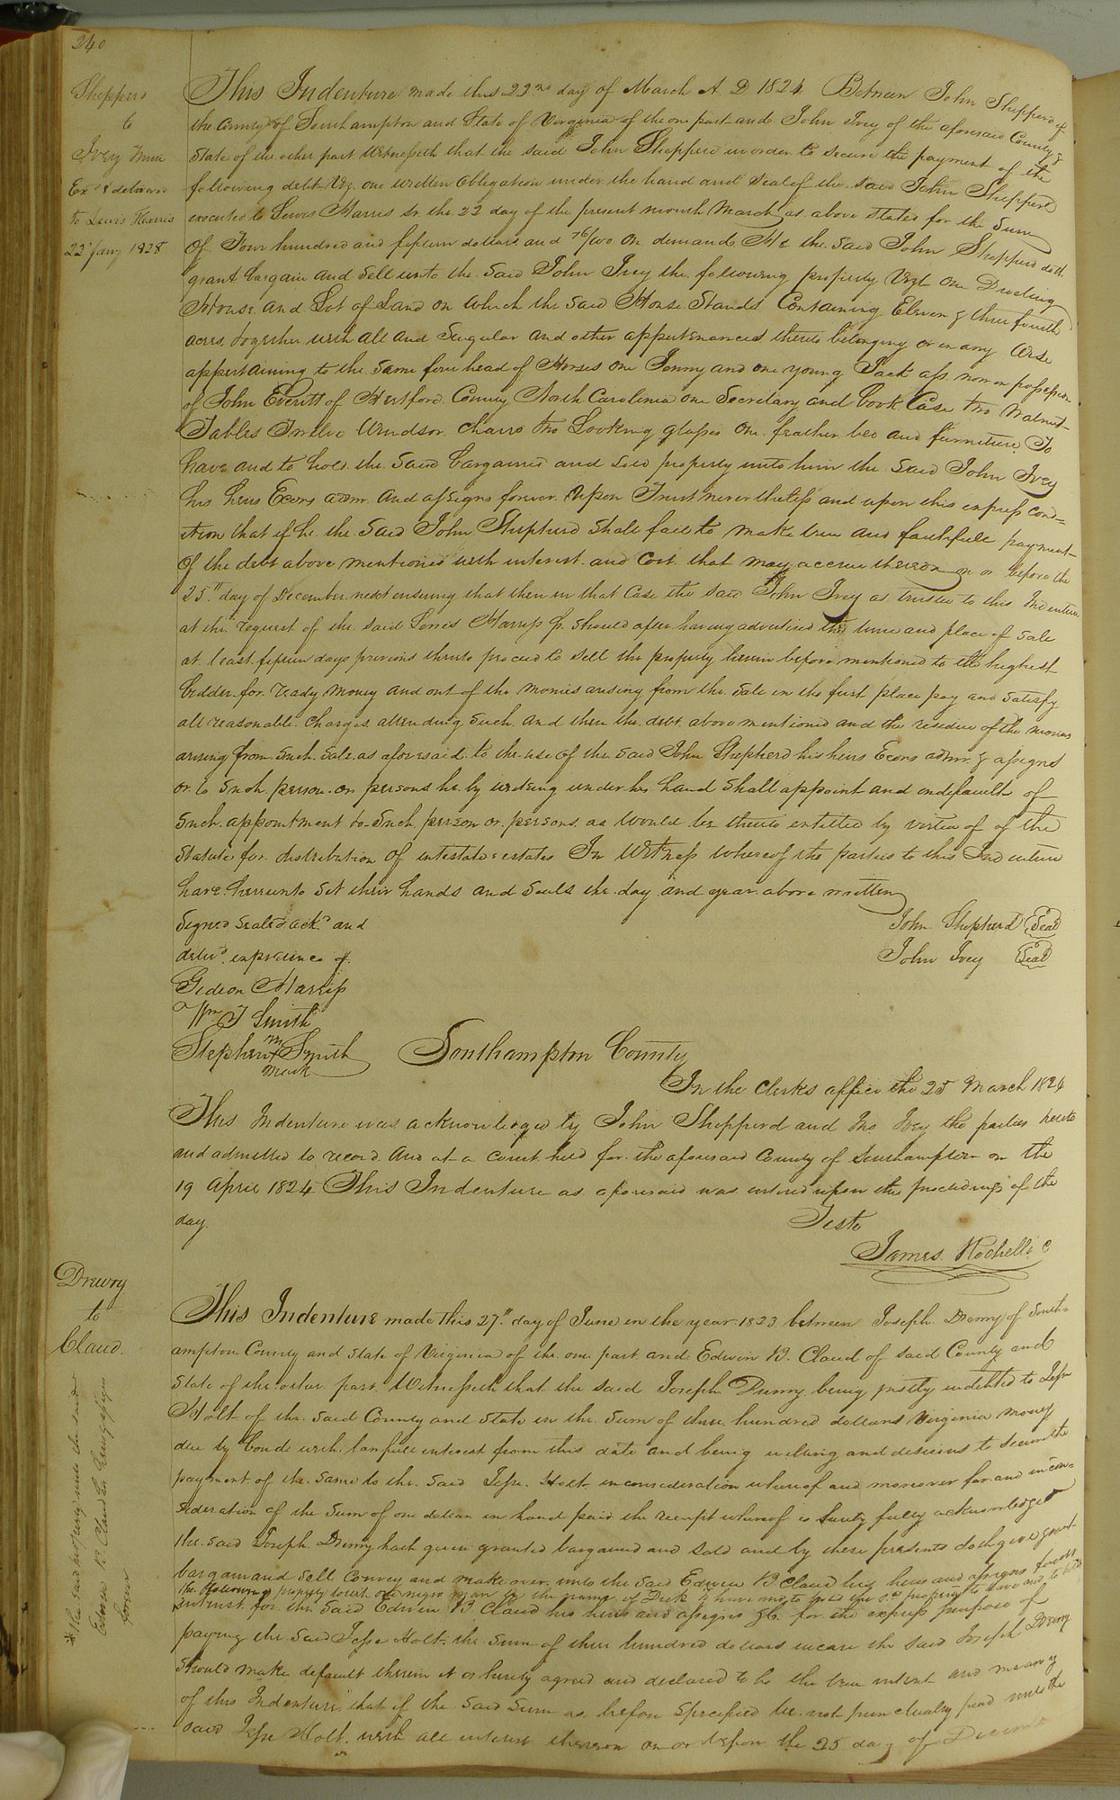 240
Shepperd
to
Ivey Trus
Exd & deliverd
to Lewis Harris
22 Jany 1828
This Indenture made this 22nd day of March A D 1824 Between John Shepperd of
the County of Southampton and State of Virginia of the one part and John Ivey of the aforesaid County &
State of the other part Witnesseth that the said John Shepperd in order to secure the payment of the
following debt Viz. one written obligation under the hand and seal of the said John Shepperd
executed to Lewis Harris Sr. the 22 day of the present month March as above stated for the Sum
Of Four hundred and fifteen dollars and 76/100 on demand He the said John Shepperd doth
grant bargain and Sell unto the Said John Ivey the following property Vizt One Dwelling
House and Lot of Land on which the said House Stands Containing Eleven & three fourth
acres, together with all and Singular and other appertenances thereto belonging or in any Wise
appertaining to the same four head of Horses One Jenny and one young Jack ass now in possession
of John Everitt of Hertford County North Carolina one Secretary and book Case two Walnut
Tables Twelve Windsor chairs two Looking glasses One feather bed and furniture. To
have and to hold the said bargained and Sold property unto him the Said John Ivey
his heirs Exors admr. and assigns forever. Upon Trust nevertheless and upon this express cond=
ition that if he the Said John Shepherd Shall fail to make true and faithfull payment
Of the debt above mentioned with interest and Cost that may accrue thereon on or before the
25th day of December next ensuing that then in that Case the said John Ivey as trustee to this Indenture
at the request of the said Lewis Harriss Jr. Should after having advertised the time and place of Sale
at least fifteen days previous thereto proceed to sell the property herein before mentioned to the highest
bidder for ready money and out of the monies arising from the Sale in the first place pay and Satisfy
all reasonable charges attending such and then the debt above mentioned and the residue of the monies
arising from such Sale as aforesaid to the use of the said John Shepherd his heirs Exors admr. & assigns
or to such person or persons he by writing under his hand Shall appoint and in default of
Such appointment to Such person or persons as would be thereto entitled by virtue of of the
Statute for distribution of intestates estates In Witness whereof the parties to this Indenture
have hereunto Set their hands and Seals the day and year above written
Signed Sealed ackd and
delivd. in presence of
John Shepherd Seal
John Ivey Seal
Gideon Harriss
Wm J Smith
Stephen Smith
mark
Southampton County
In the Clerks office the 25 March 1824
This Indenture was acknowledged by John Shepperd and Jno Ivey the parties hereto
and admitted to record And at a Court held for the aforesaid County of Southampton on the
19 April 1824 This Indenture as aforesaid was entered upon the proceedings of the
day.
Teste
James Rochelle C
Drewry
to
Claud
This Indenture made this 27th day of June in the year 1823 between Joseph Drewry of South=
ampton County and State of Virginia of the one part and Edwin B. Claud of said County and
State of the other part. Witnesseth that the said Joseph Drewry being justly indebted to Jesse
Holt of the said County and State in the Sum of three hundred dollars Virginia money
due by bond with lawfull interest from this date and being willing and desirous to secure the
payment of the same to the said Jesse Holt in consideration whereof and moreover for and in con=
sideration of the Sum of one dollar in hand paid the receipt whereof is hereby fully acknowledged
the said Joseph Drewry hath given granted bargained and sold and by these presents doth give grant
bargain and sell Convey and make over unto the Said Edwin B Claud his heirs and assigns forever
the following property towit. One negro man by the name of Dick To have and to hold the sd property to have and to hold
* the said property unto the said
Edwin B. Claud his heirs & assigns
forever
in trust for the Said Edwin B Claud his heirs and assigns &c. for the express purpose of
paying the said Jesse Holt the Sum of three hundred dollars in case the said Joseph Drewry
should make default therein it is hereby agreed and declared to be the true intent and meaning
of this Indenture that if the said Sum as before specified be not punctually paid unto the
said Jesse Holt with all interest thereon on or before the 25 day of December